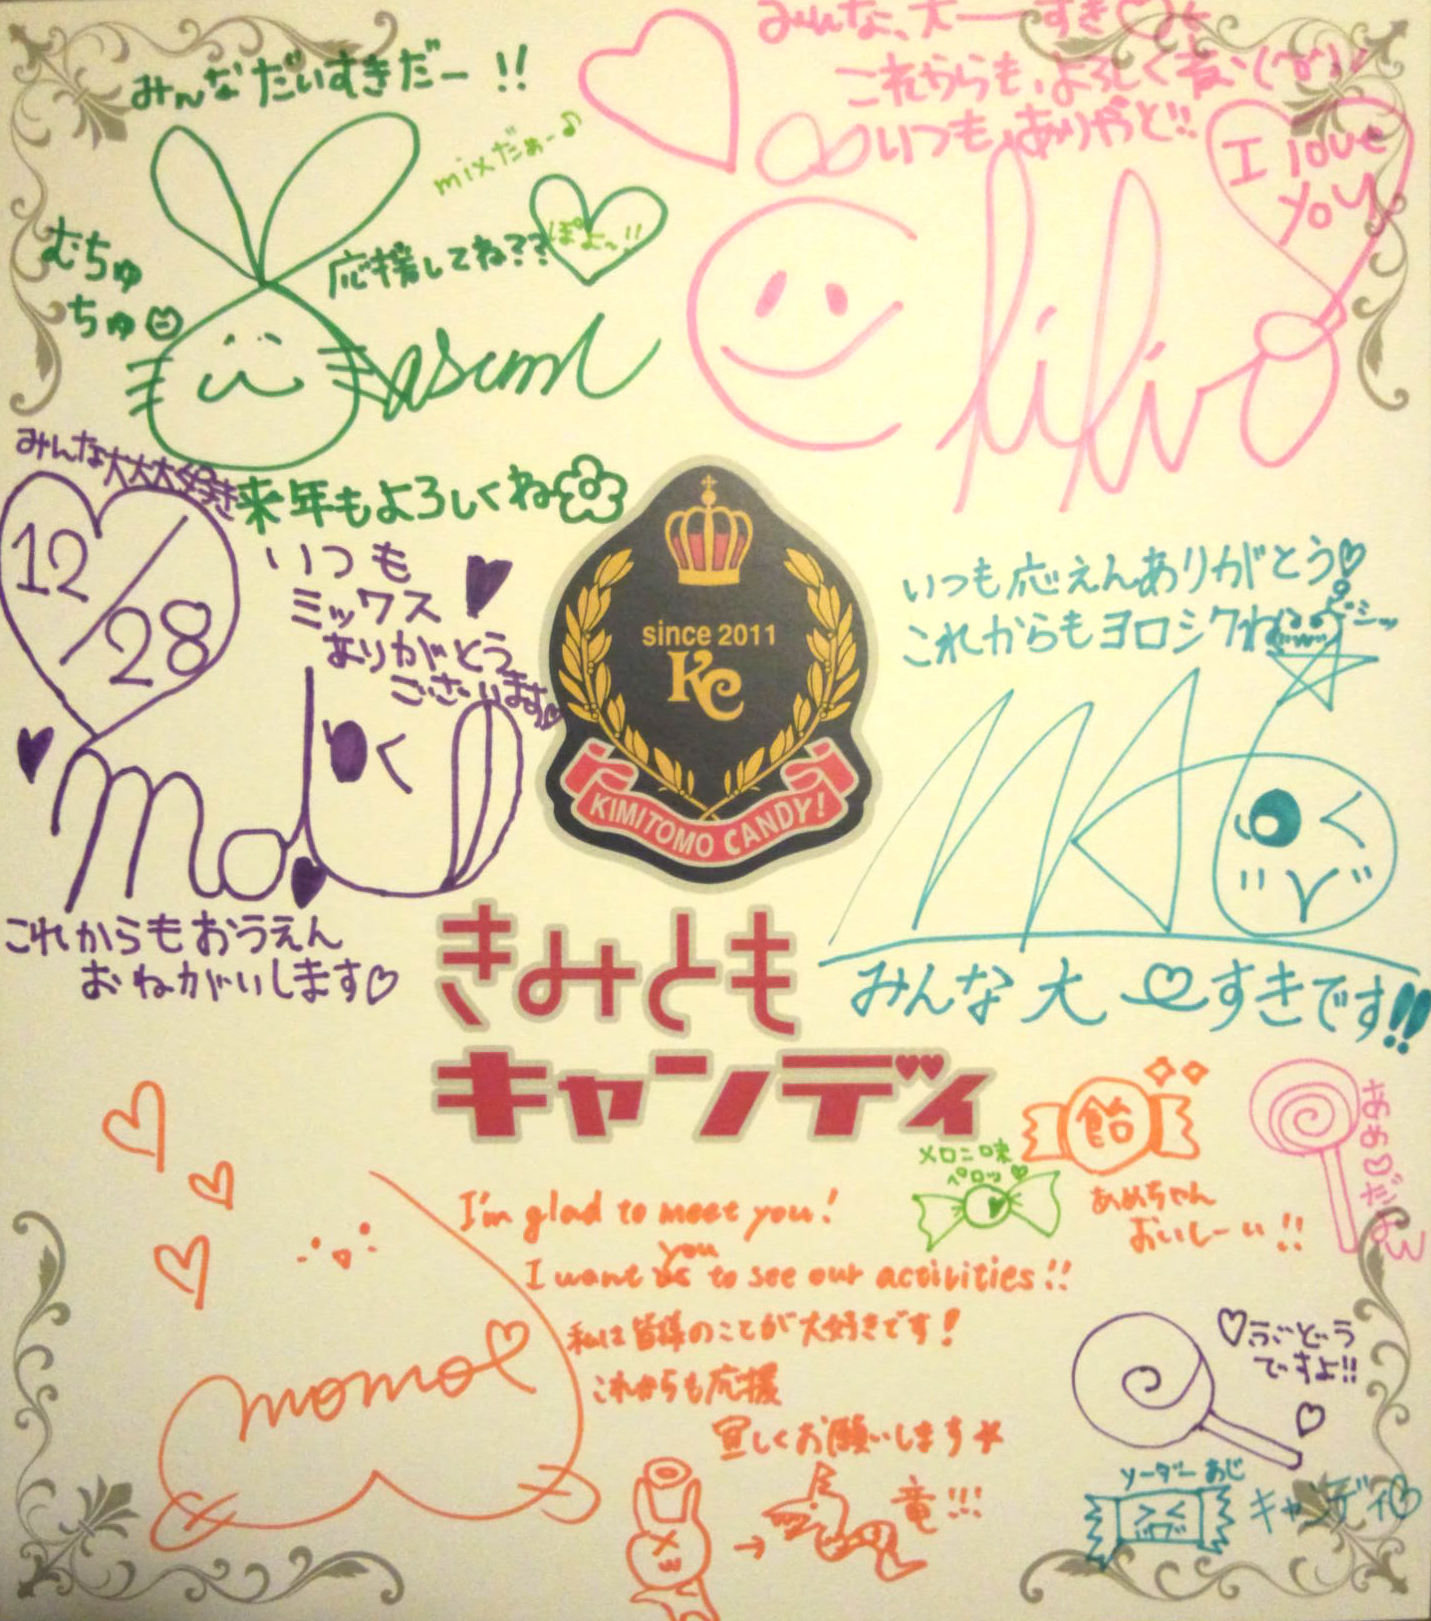 みんなだいすきだー!!
mixだぁー♪
むちゅ
ちゅ
応援してね??
ぽよっ!!
asumi
来年もよろしくね
みんな、大――すき♡
これからも、よろしく
いつもありがと!!
I love
you
みんな大大大好き
12/28
いつも
ミックス
ありがとう
ございます♡
これからもおうえん
おねがいします♡
since 2011
KC
KIMITOMO CANDY!
いつも応えんありがとう♡
これからもヨロシクね
MAO
みんな大♡すきです!!
きみとも
キャンディ
メロン味
ペロッ♡
飴
あめちゃん
おいしーい!!
あめ♡だよ
I'm glad to meet you!
you
I want to see our activities!!
momo
私は皆様のことが大好きです!
これからも応援
宜しくお願いします☆
→
竜!!!
ソーダーあじ
キャンディ♡